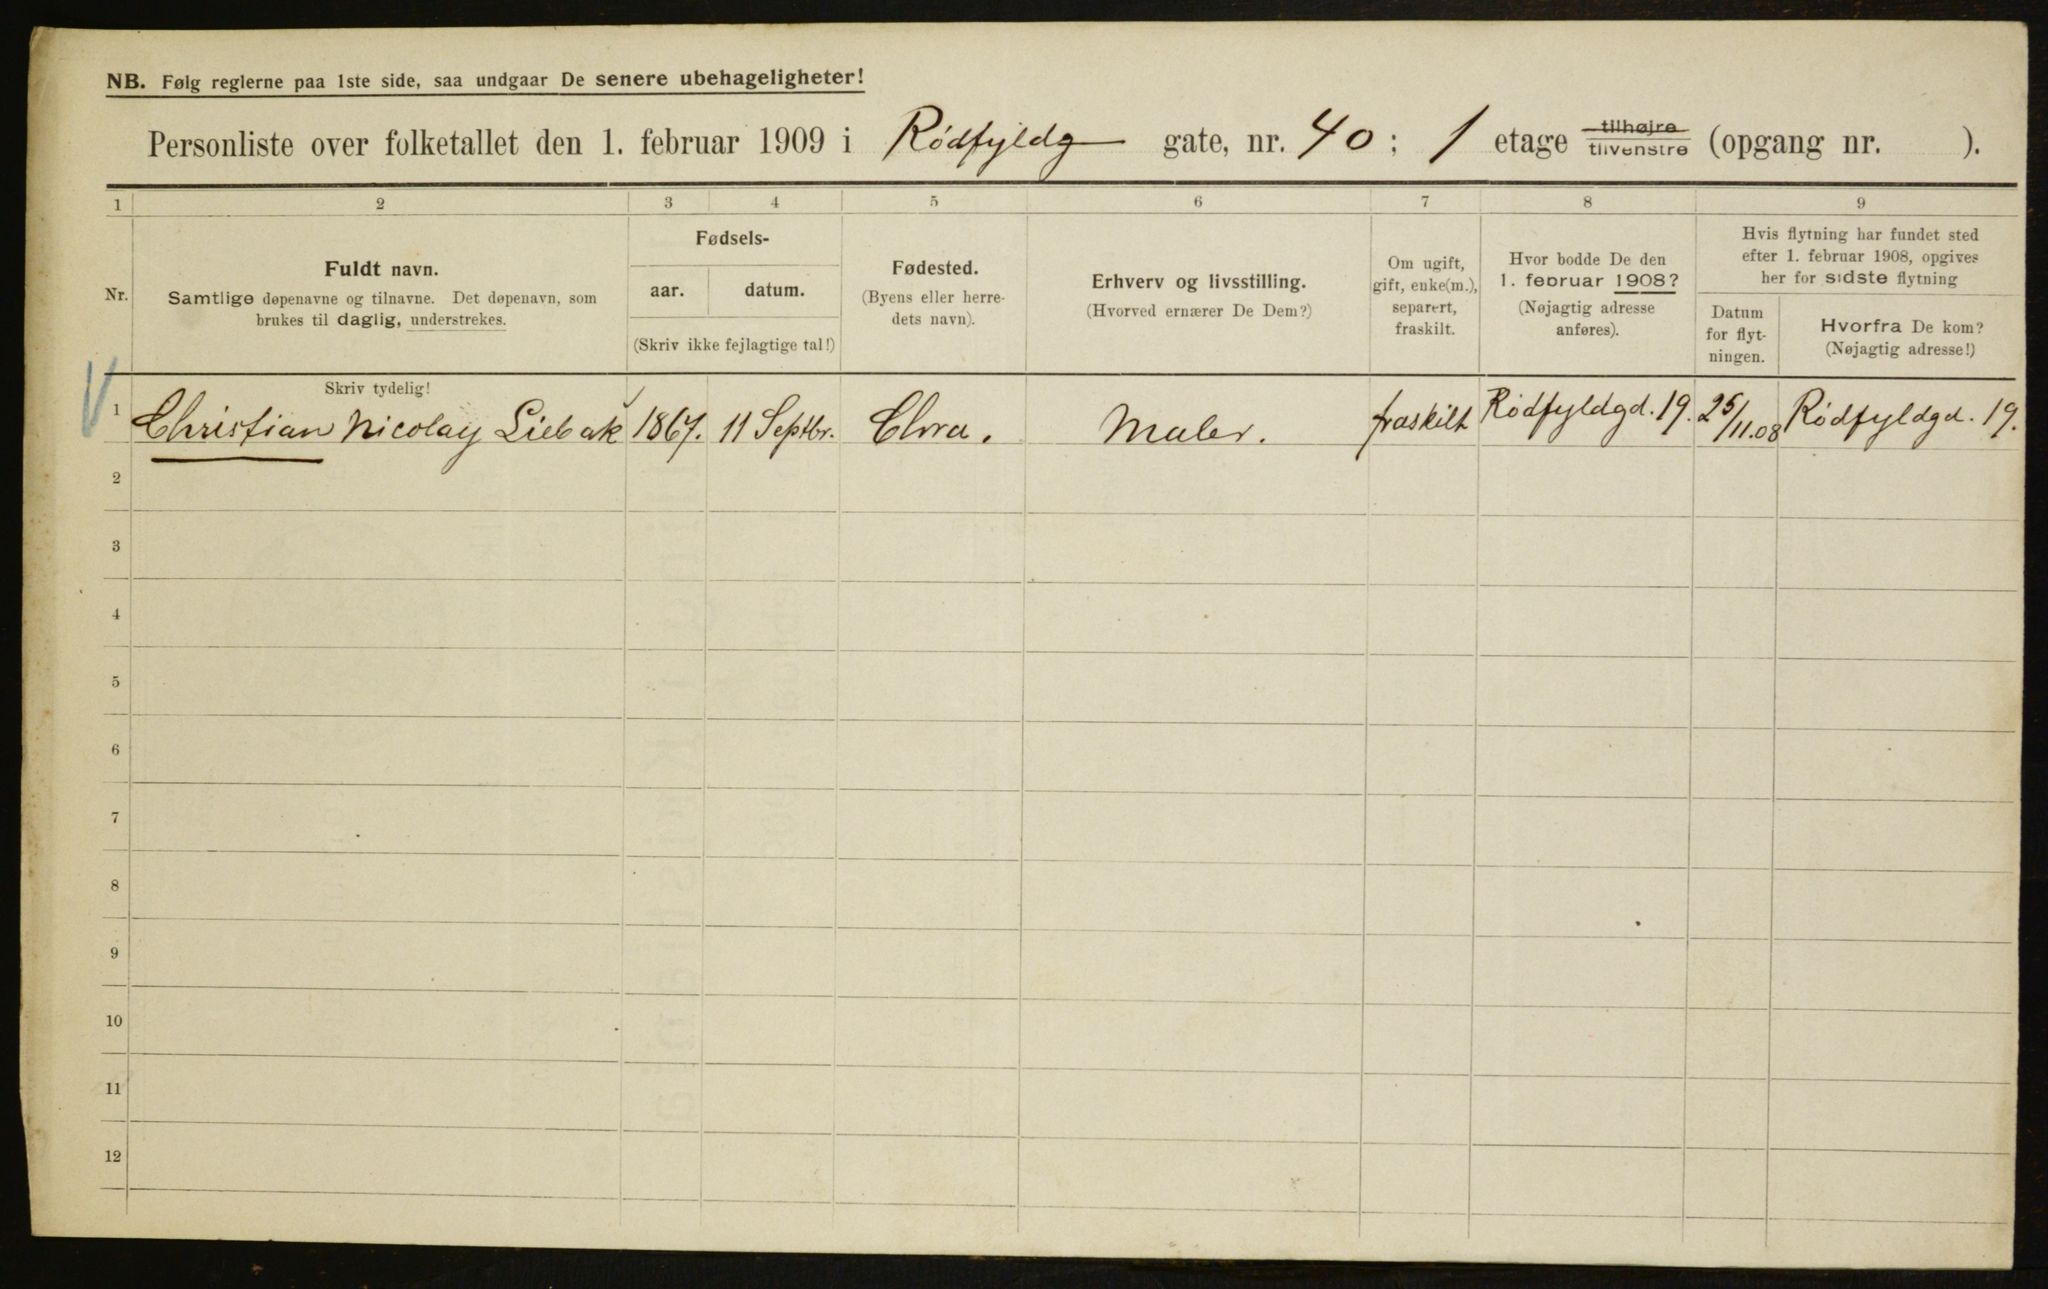 NB. Følg reglerne paa 1ste side, saa undgaar De senere ubehageligheter!
Personliste over folketallet den 1. februar 1909 i Rødfyldg gate, nr. 40; 1 etage tilhøjre tilvenstre (opgang nr. ).
1 2 3 4 5 6 7 8 9
Nr.
Fuldt navn.
Samtlige døpenavne og tilnavne. Det døpenavn, som
brukes til daglig, understrekes.
Skriv tydelig!
Fødsels-
aar. datum.
(Skriv ikke fejlagtige tal!)
Fødested.
(Byens eller herre-
dets navn).
Erhverv og livsstilling.
(Hvorved ernærer De Dem?)
Om ugift,
gift, enke(m.),
separert,
fraskilt.
Hvor bodde De den
1. februar 1908?
(Nøjagtig adresse
anføres).
Hvis flytning har fundet sted
efter 1. februar 1908, opgives
her for sidste flytning
Datum
for flyt-
ningen.
Hvorfra De kom?
(Nøjagtig adresse!)
1 Christian Nicolay Liebak 1867. 11 Septbr. Chra. Maler. fraskilt Rødfyldgd. 19. 25/11.08 Rødfyldgd. 19.
2
3
4
5
6
7
8
9
10
11
12